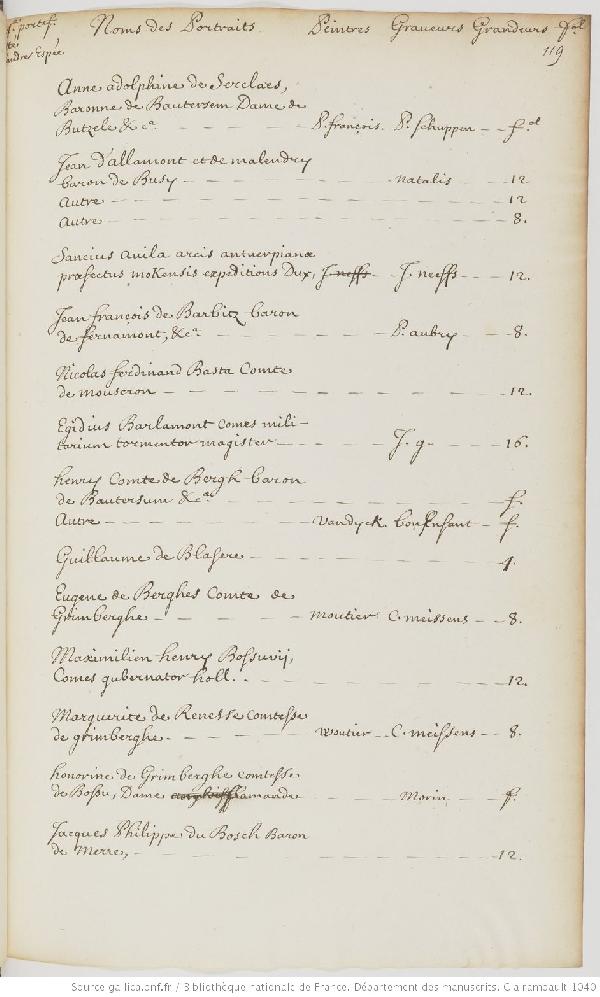 portef.
Noms des Portraits Peintres Graveurs Grandeurs fol
119
Anne adolphine de Serclaes,
Baronne de Bautersem Dame de
Butzele &ca. P. françois. P. Schuppen f.
Jean d'allamont et de malendry
baron de Busy natalis 12
Autre 12
Autre 8.
Sancius avila arcis antuerpianæ
præfectus moKensis expeditions Dux, J. neeffs J. neeffs 12.
Jean françois de Barbitz baron
de fernamont, &ca P. aubry 8.
Nicolas ferdinand Basta Comte
de mouscron 12.
Egidius Barlamont comes mili-
tarium tormentor magister J. g. 16.
henry Comte de Bergh baron
de Bautersum &ca f.
Autre Vandyck. bonEnfant f.
Guillaume de Blasere 4.
Eugene de Berghes Comte de
Grimberghe moutier C. meissens 8.
Maximilien henry Bossuvij,
Comes gubernator holl. 12.
Marguerite de Renesse comtesse
de grimberghe woutier C. meissens 8.
honorine de Grimberghe comtesse
de Bossu, Dame Morin f.
Jacques Philippe du Bosch Baron
de Merre, 12.
Source gallica.bnf.fr / Bibliothèque nationale de France. Département des manuscrits. Clairambault 1040